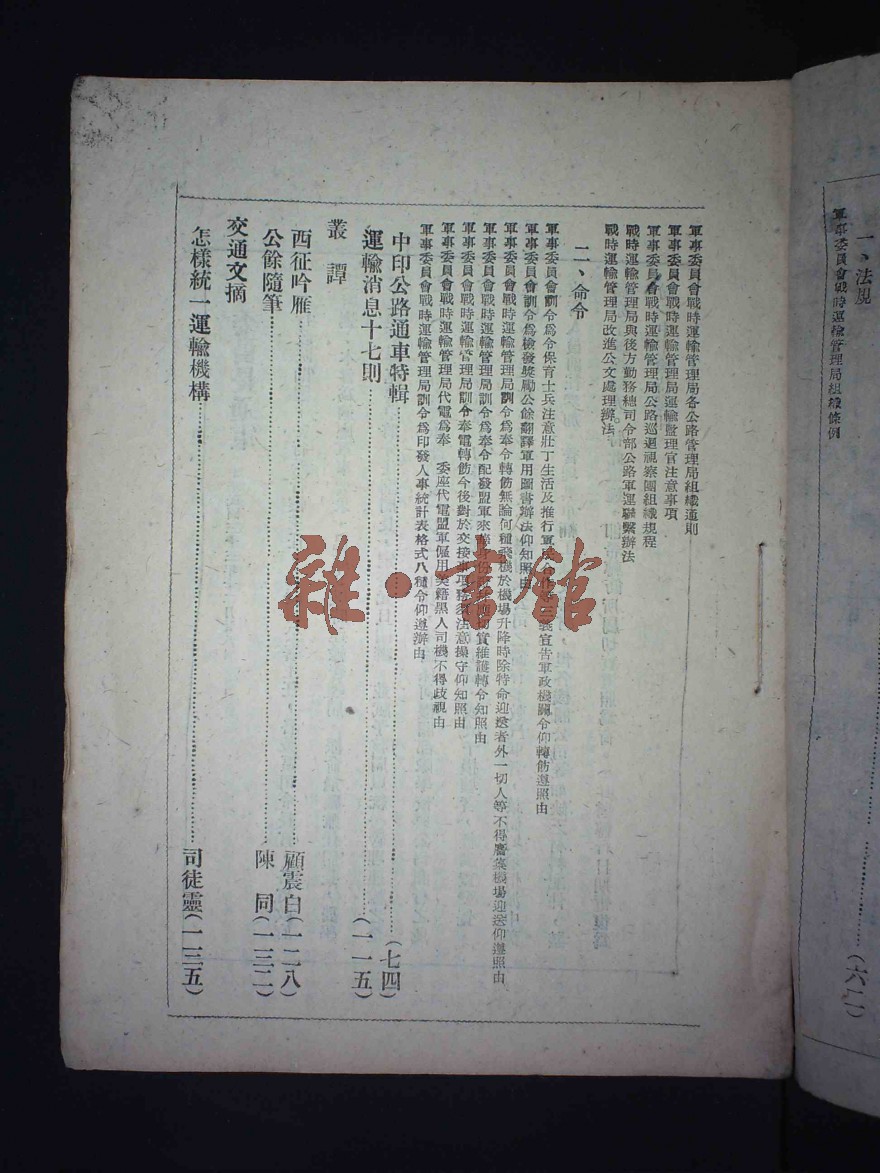 一、法規……(六二)
軍事委員會戰時運輸管理局組織條例
軍事委員會戰時運輸管理局各公路管理局組織通則
軍事委員會戰時運輸管理局運輸監理官注意事項
軍事委員會戰時運輸管理局公路巡迴視察團組織規程
戰時運輸管理局與後方勤務總司令部公路軍運聯繫辦法
戰時運輸管理局改進公文處理辦法
二、命令
軍事委員會訓令爲令保育士兵注意壯丁生活及推行軍民合作 宣告軍政機關令仰轉飭遵照由
軍事委員會訓令爲檢發獎勵公餘翻譯軍用圖書辦法仰知照由
軍事委員會戰時運輸管理局訓令爲奉令轉飭無論何種飛機於機場升降時除特命迎送者外一切人等不得麕集機場迎送仰遵照由
軍事委員會戰時運輸管理局訓令爲奉令配發盟軍來華 實維護轉令知照由
軍事委員會戰時運輸管理局訓令奉電轉飭今後對於交接 項務須注意操守仰知照由
軍事委員會戰時運輸管理局代電爲奉 委座代電盟軍僱用美籍黑人司機不得歧視由
軍事委員會戰時運輸管理局訓令爲印發人事統計表格式八種令仰遵辦由
中印公路通車特輯……(七四)
運輸消息十七則……(一一五)
叢譚
西征吟雁……顧震白(一二八)
公餘隨筆……陳同(一三二)
交通文摘
怎樣統一運輸機構……司徒靈(一三五)
雜·書館